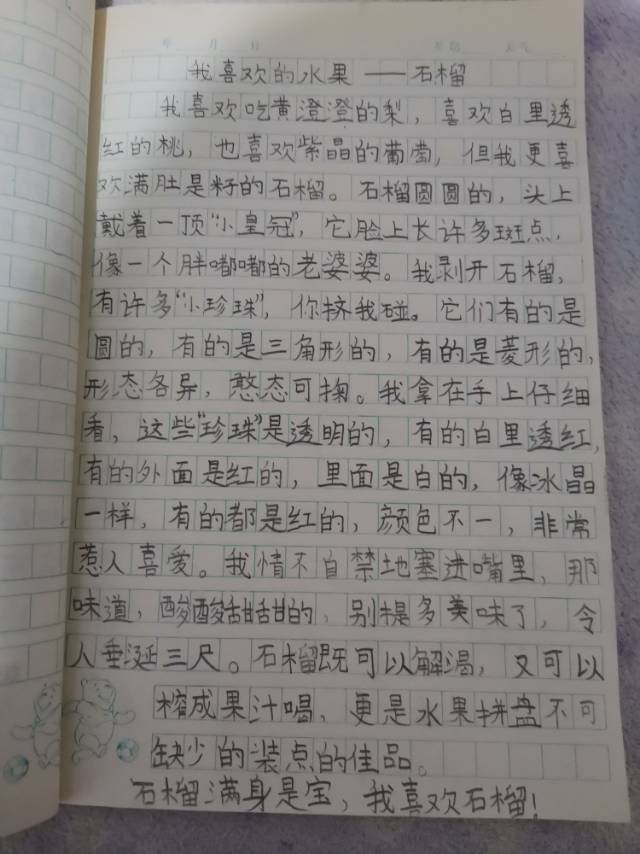 年 月 日 星期 天气
我喜欢的水果——石榴
我喜欢吃黄澄澄的梨，喜欢白里透
红的桃，也喜欢紫晶的葡萄，但我更喜
欢满肚是籽的石榴。石榴圆圆的，头上
戴着一顶“小皇冠”，它脸上长许多斑点，
像一个胖嘟嘟的老婆婆。我剥开石榴，
有许多“小珍珠”，你挤我碰。它们有的是
圆的，有的是三角形的，有的是菱形的，
形态各异，憨态可掬。我拿在手上仔细
看，这些“珍珠”是透明的，有的白里透红，
有的外面是红的，里面是白的，像冰晶
一样，有的都是红的，颜色不一，非常
惹人喜爱。我情不自禁地塞进嘴里，那
味道，酸酸甜甜的，别提多美味了，令
人垂涎三尺。石榴既可以解渴，又可以
榨成果汁喝，更是水果拼盘不可
缺少的装点的佳品。
石榴满身是宝，我喜欢石榴！